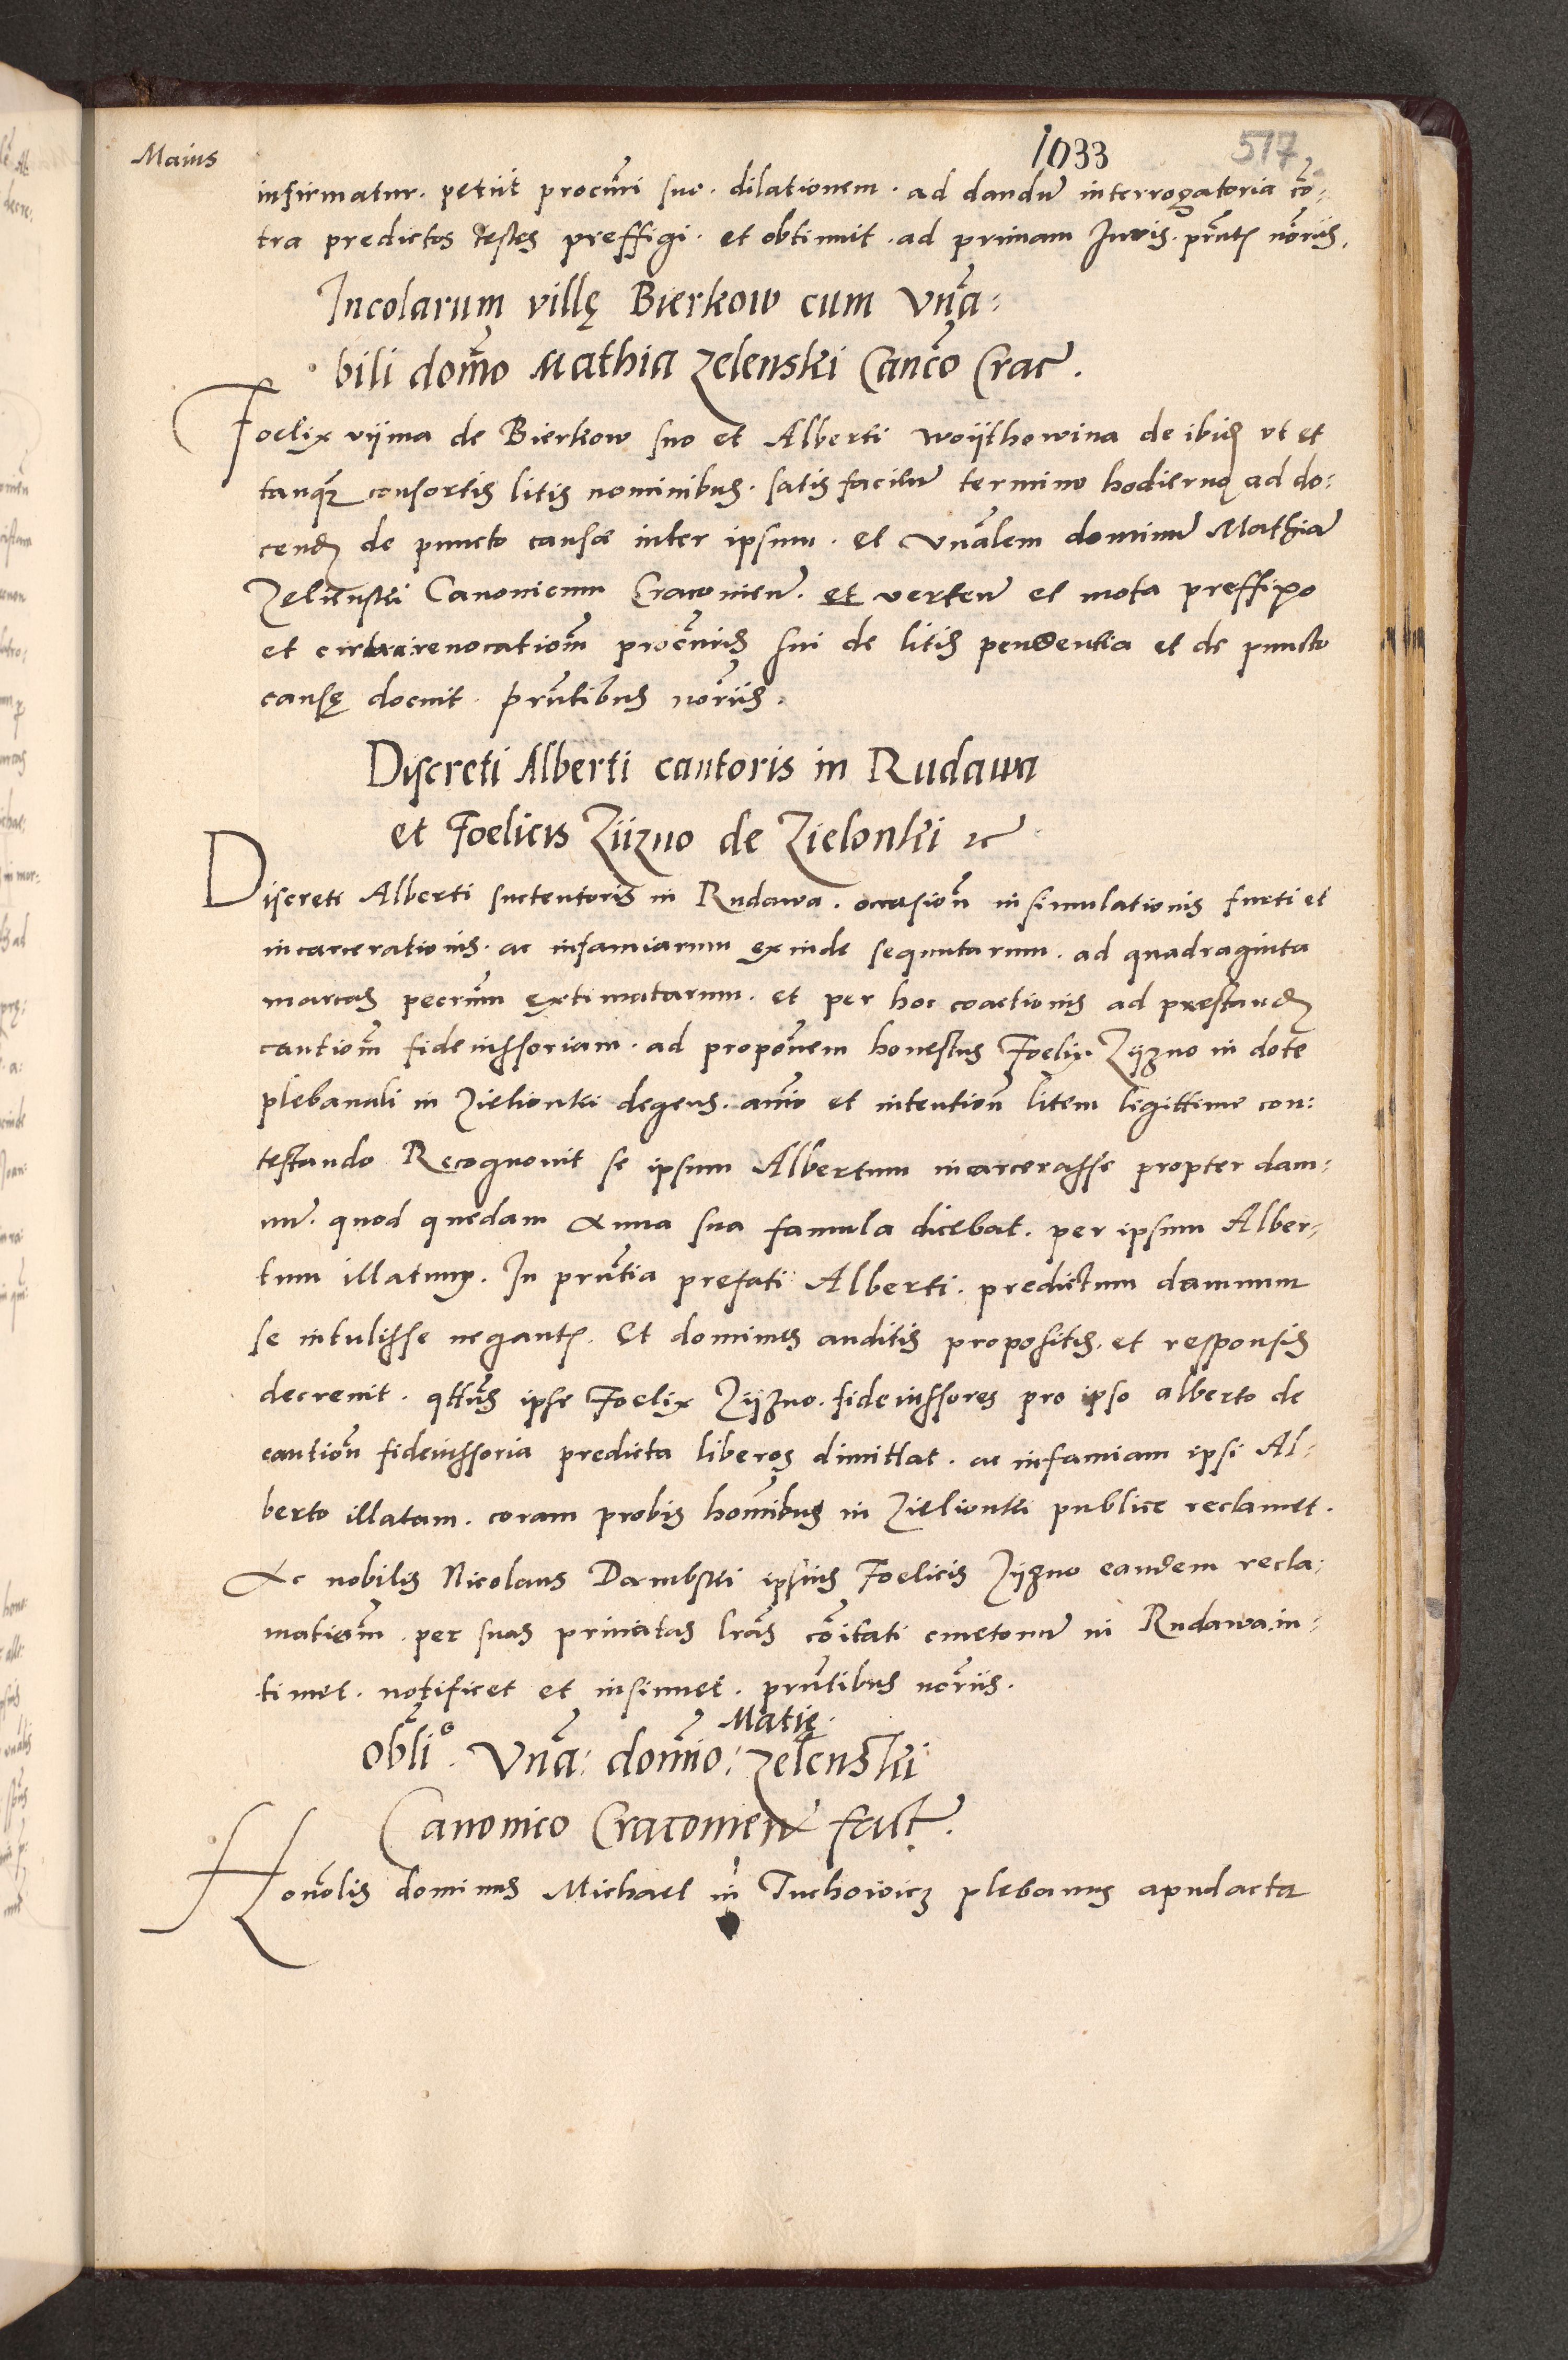 Maius
1033
517
infirmatur. petiit procūri suo. dilationem. ad dandū interrogatoria cō-
tra predictos testes preffigi. et obtinuit. ad primam Iuris. prn̄tꝭ norijs.
Incolarum villę Bierkow cum Vn̄a-
bili domīo Mathia Zelenski Canco Crac̄.
Foelix vijma de Bierkow suo et Alberti Woijthowina de ibid vt et
tanquam consortis litis nominibus. satisfaciendū termino hodierno ad do-
cend de puncto causae inter ipsum. et Vn̄alem dominū Mathiā
Zelienski Canonicum Cracovien̄. et verten̄ et mota preffixo
et citra revocatiom̄ procūrūs sui de litis pendentia et de puncto
causę docuit. prn̄tibus norijs.
Discreti Alberti cantoris in Rudawa
et Foelicis Zijzno de Zielonki etc
Discreti Alberti suctentoris in Rudawa. occasion̄ insimulationis furti et
incarcerationis. ac infamiarum exinde sequutarum. ad quadraginta
marcas pecrum̄ extimatarum. et per hoc coactionis ad prestand
cautiom̄ fideiussoriam. ad propōnem honestus Foelix Zijzno in dote
plebanali in Zielionki degens. anīo et intention̄ litem ligittime con-
testando Recognovit se ipsum Albertum incarcerasse propter dam-
nū. quod quedam Anna sua famula dicebat. per ipsum Alber-
tum illatum. In prn̄tia prefati Alberti. predictum damnum
se intulisse negantꝭ. Et dominus auditis propositis. et responsis
decrevit. qttūs ipse Foelix Zijzno. fideiussores pro ipso alberto de
caution̄ fideiussoria predicta liberos dimittat. ac infamiam ipsi Al-
berto illatam. coram probis hom̄ibus in Zielionki publice reclamet.
Ac nobilis Nicolaus Dambski ipsius Foelicis Zijzno eandem recla-
matiom̄. per suas privatas lrās cōitati cmetonū in Rudawa. in-
timet. notificet et insinuet. prn̄tibus norijs.
Matię.
Oblio. Vn̄a: domīo: Zelenski
Canonico Cracovien̄ fact̄.
Honōlis dominus Michael in Tuchowicz plebanus apudacta